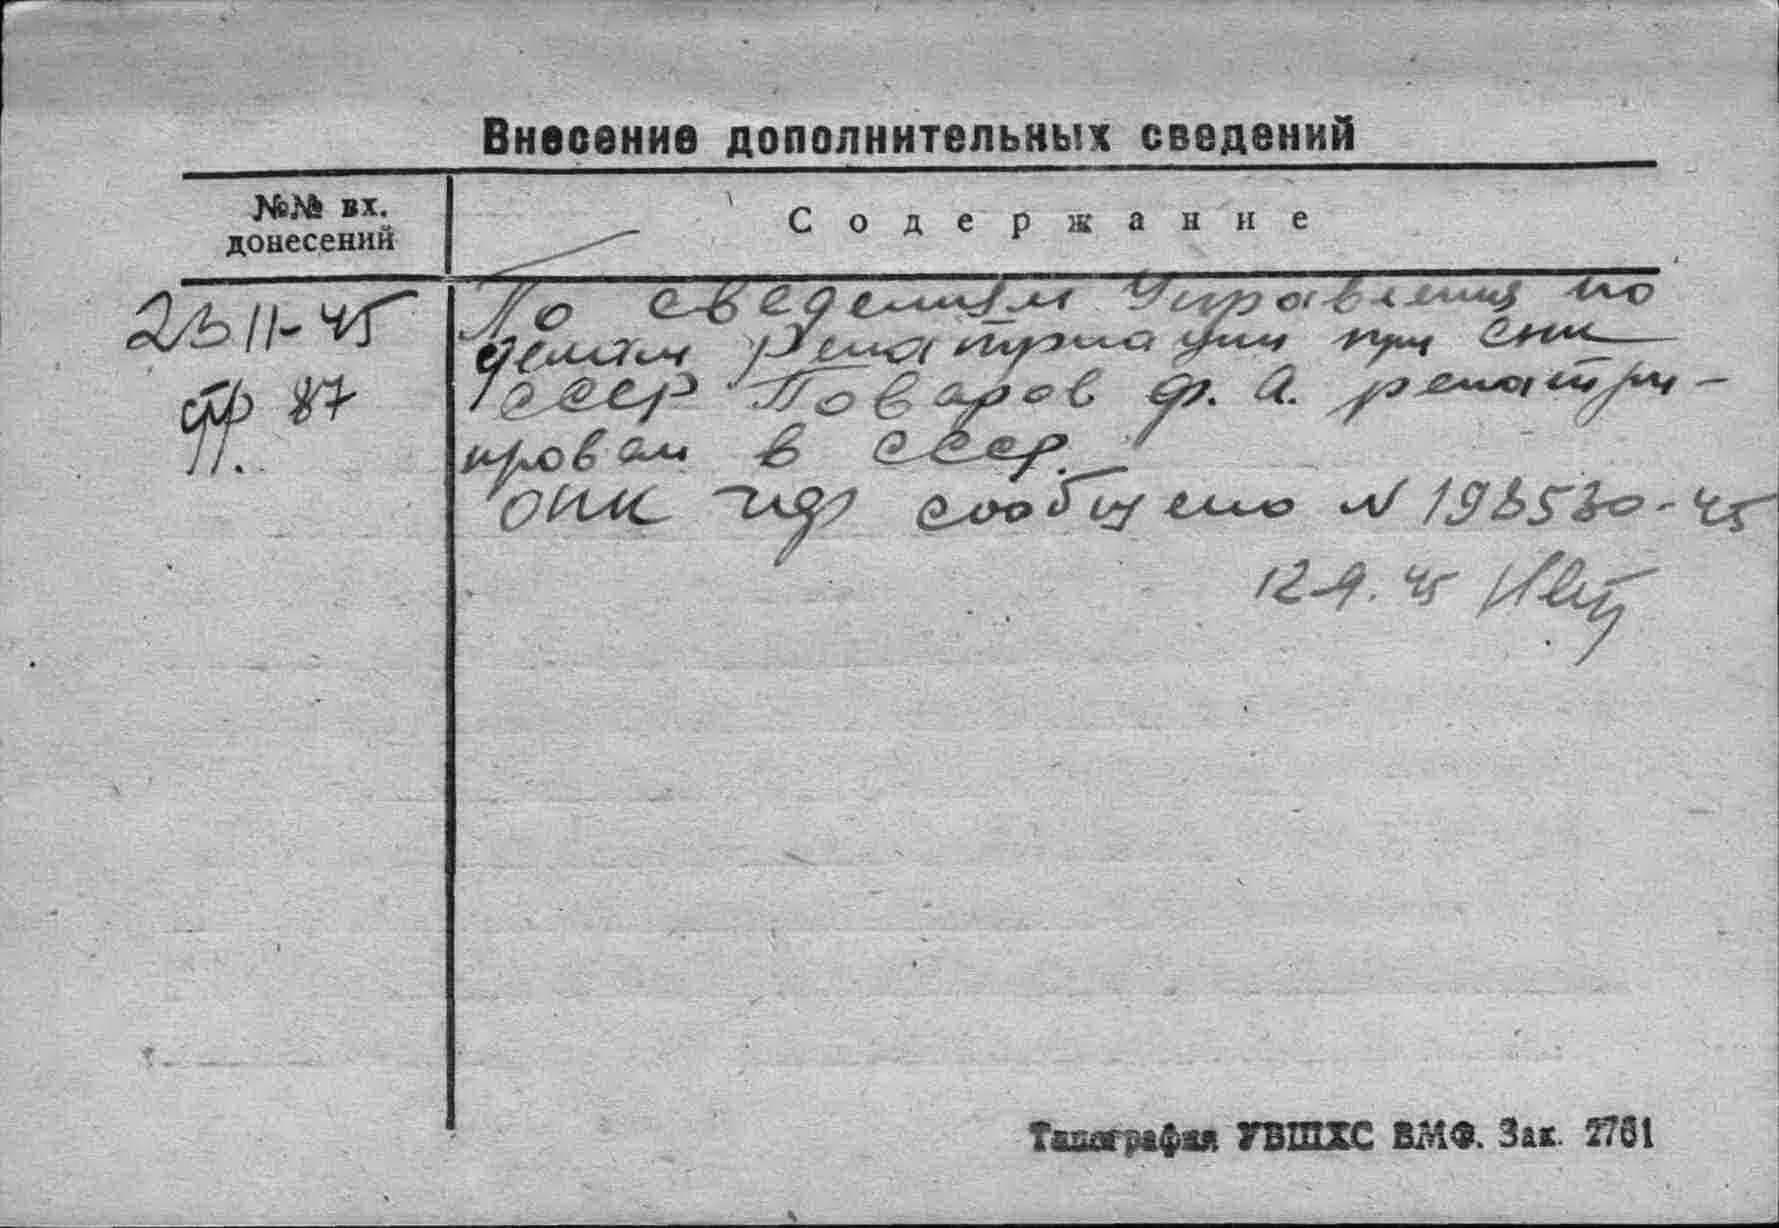 Внесение дополнительных сведений
№№ вх.
донесений
Содержание
23 11-45
стр 87
По сведениям Управления по
делам Репатриации при СНК
СССР Поваров Ф. А. репатри-
ирован в СССР.
ОПК сообщено N 193530-45
12 9. 45
Типография УВШХС ВМФ. Зак. 2761